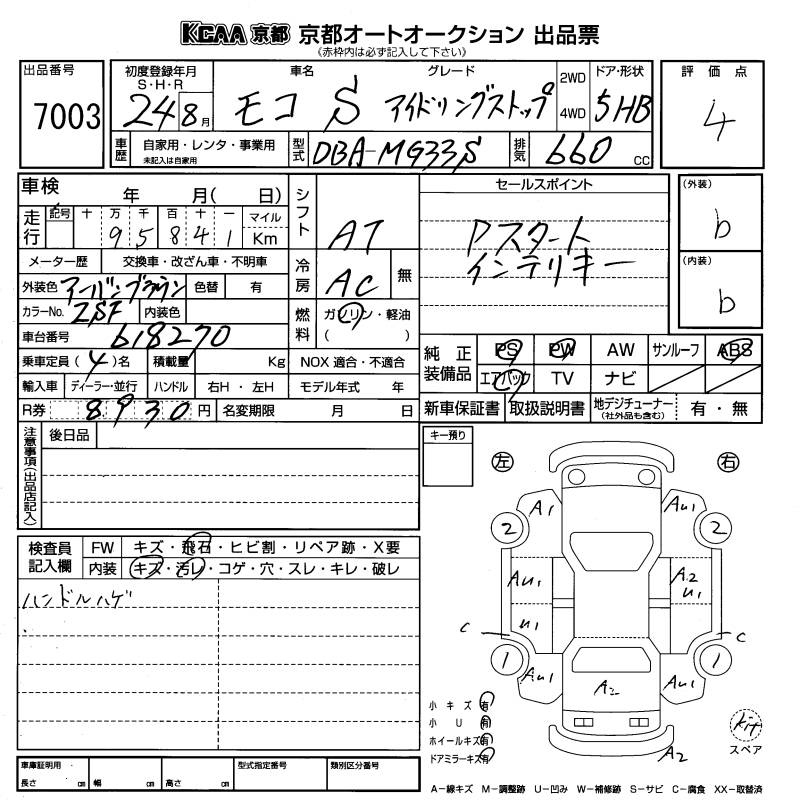 KCAA 京都 京都オートオークション 出品票
(赤枠内は必ず記入して下さい)
出品番号
7003
初度登録年月
S・H・R
24 8月
車名
モコ S
グレード
アイドリングストップ
2WD
4WD
ドア・形状
5HB
評価点
4
車歴
自家用・レンタ・事業用
未記入は自家用
型式
DBA-MG33S
排気
660 cc
車検 年 月( 日)
走行
記号 十 万 千 百 十 一
9 5 8 4 1
マイル
Km
メーター歴 交換車・改ざん車・不明車
外装色 アーバンブラウン 色替 有
カラーNo. ZSF 内装色
車台番号 618270
乗車定員(4)名 積載量 Kg
輸入車 ディーラー・並行 ハンドル 右H・左H
R券 8930円 名変期限 月 日
シフト AT
冷房 AC 無
燃料 ガソリン・軽油
( )
NOX 適合・不適合
モデル年式 年
セールスポイント
Pスタート
インテリキー
(外装)
b
(内装)
b
純正装備品
PS PW AW サンルーフ ABS
エアバック TV ナビ
新車保証書 取扱説明書 地デジチューナー
(社外品も含む) 有・無
注意事項(出品店記入)
後日品
キー預り
検査員記入欄
FW キズ・飛石・ヒビ割・リペア跡・X要
内装 キズ・汚レ・コゲ・穴・スレ・キレ・破レ
ハンドルハゲ
左 右
A1 AU1
2 2
AU1 A2
U1
U1
C C
1 1
AU1 AU1
A2
A2
小キズ 有
小U 有
ホイールキズ 有
ドアミラーキズ 有
kit
スペア
車庫証明用
長さ cm 幅 cm 高さ cm
型式指定番号
類別区分番号
A-線キズ M-調整跡 U-凹み W-補修跡 S-サビ C-腐食 XX-取替済